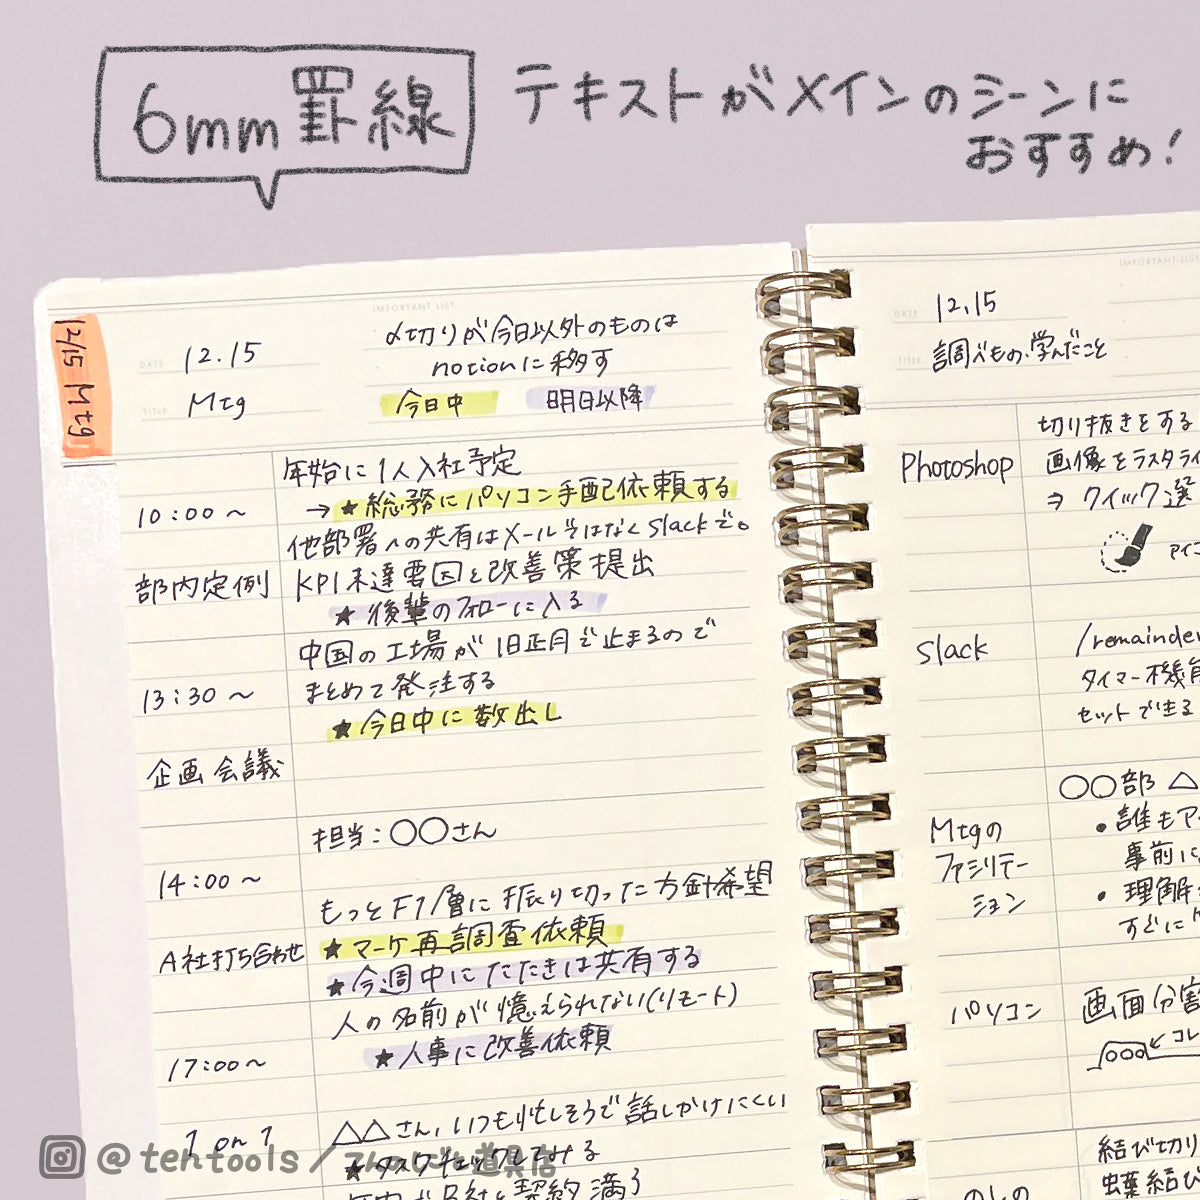 6mm罫線
テキストがメインのシーンに
おすすめ!
IMPORTANT LIST
12/15 Mtg
DATE 12.15
〆切りが今日以外のものは
notionに移す
TITLE Mtg
今日中 明日以降
年始に1人入社予定
10:00〜
→★総務にパソコン手配依頼する
他部署への共有はメールではなくSlackで。
部内定例
KPI未達要因と改善策提出
★後輩のフォローに入る
中国の工場が旧正月で止まるので
13:30〜
まとめて発注する
★今日中に数出し
企画会議
担当:○○さん
14:00〜
もっとF1層に振り切った方針希望
A社打ち合わせ
★マーケ再調査依頼
★今週中にたたきは共有する
人の名前が憶えられない(リモート)
★人事に改善依頼
17:00〜
1 on 1
△△さん,いつも忙しそうで話しかけにくい
★タスクチェックしてみる
IMPORTANT LIST
DATE 12.15
TITLE 調べもの・学んだこと
Photoshop
切り抜きをする
画像をラスタライ
⇒ クイック選
アイコ
Slack
/remainder
タイマー機能
セットできる
Mtgの
ファシリテー
ション
○○部 △
・誰もア
事前に
・理解
すぐに
パソコン
画面分割
コレ
結び切り
蝶結び
のしの
@tentools/てんのじと道具店